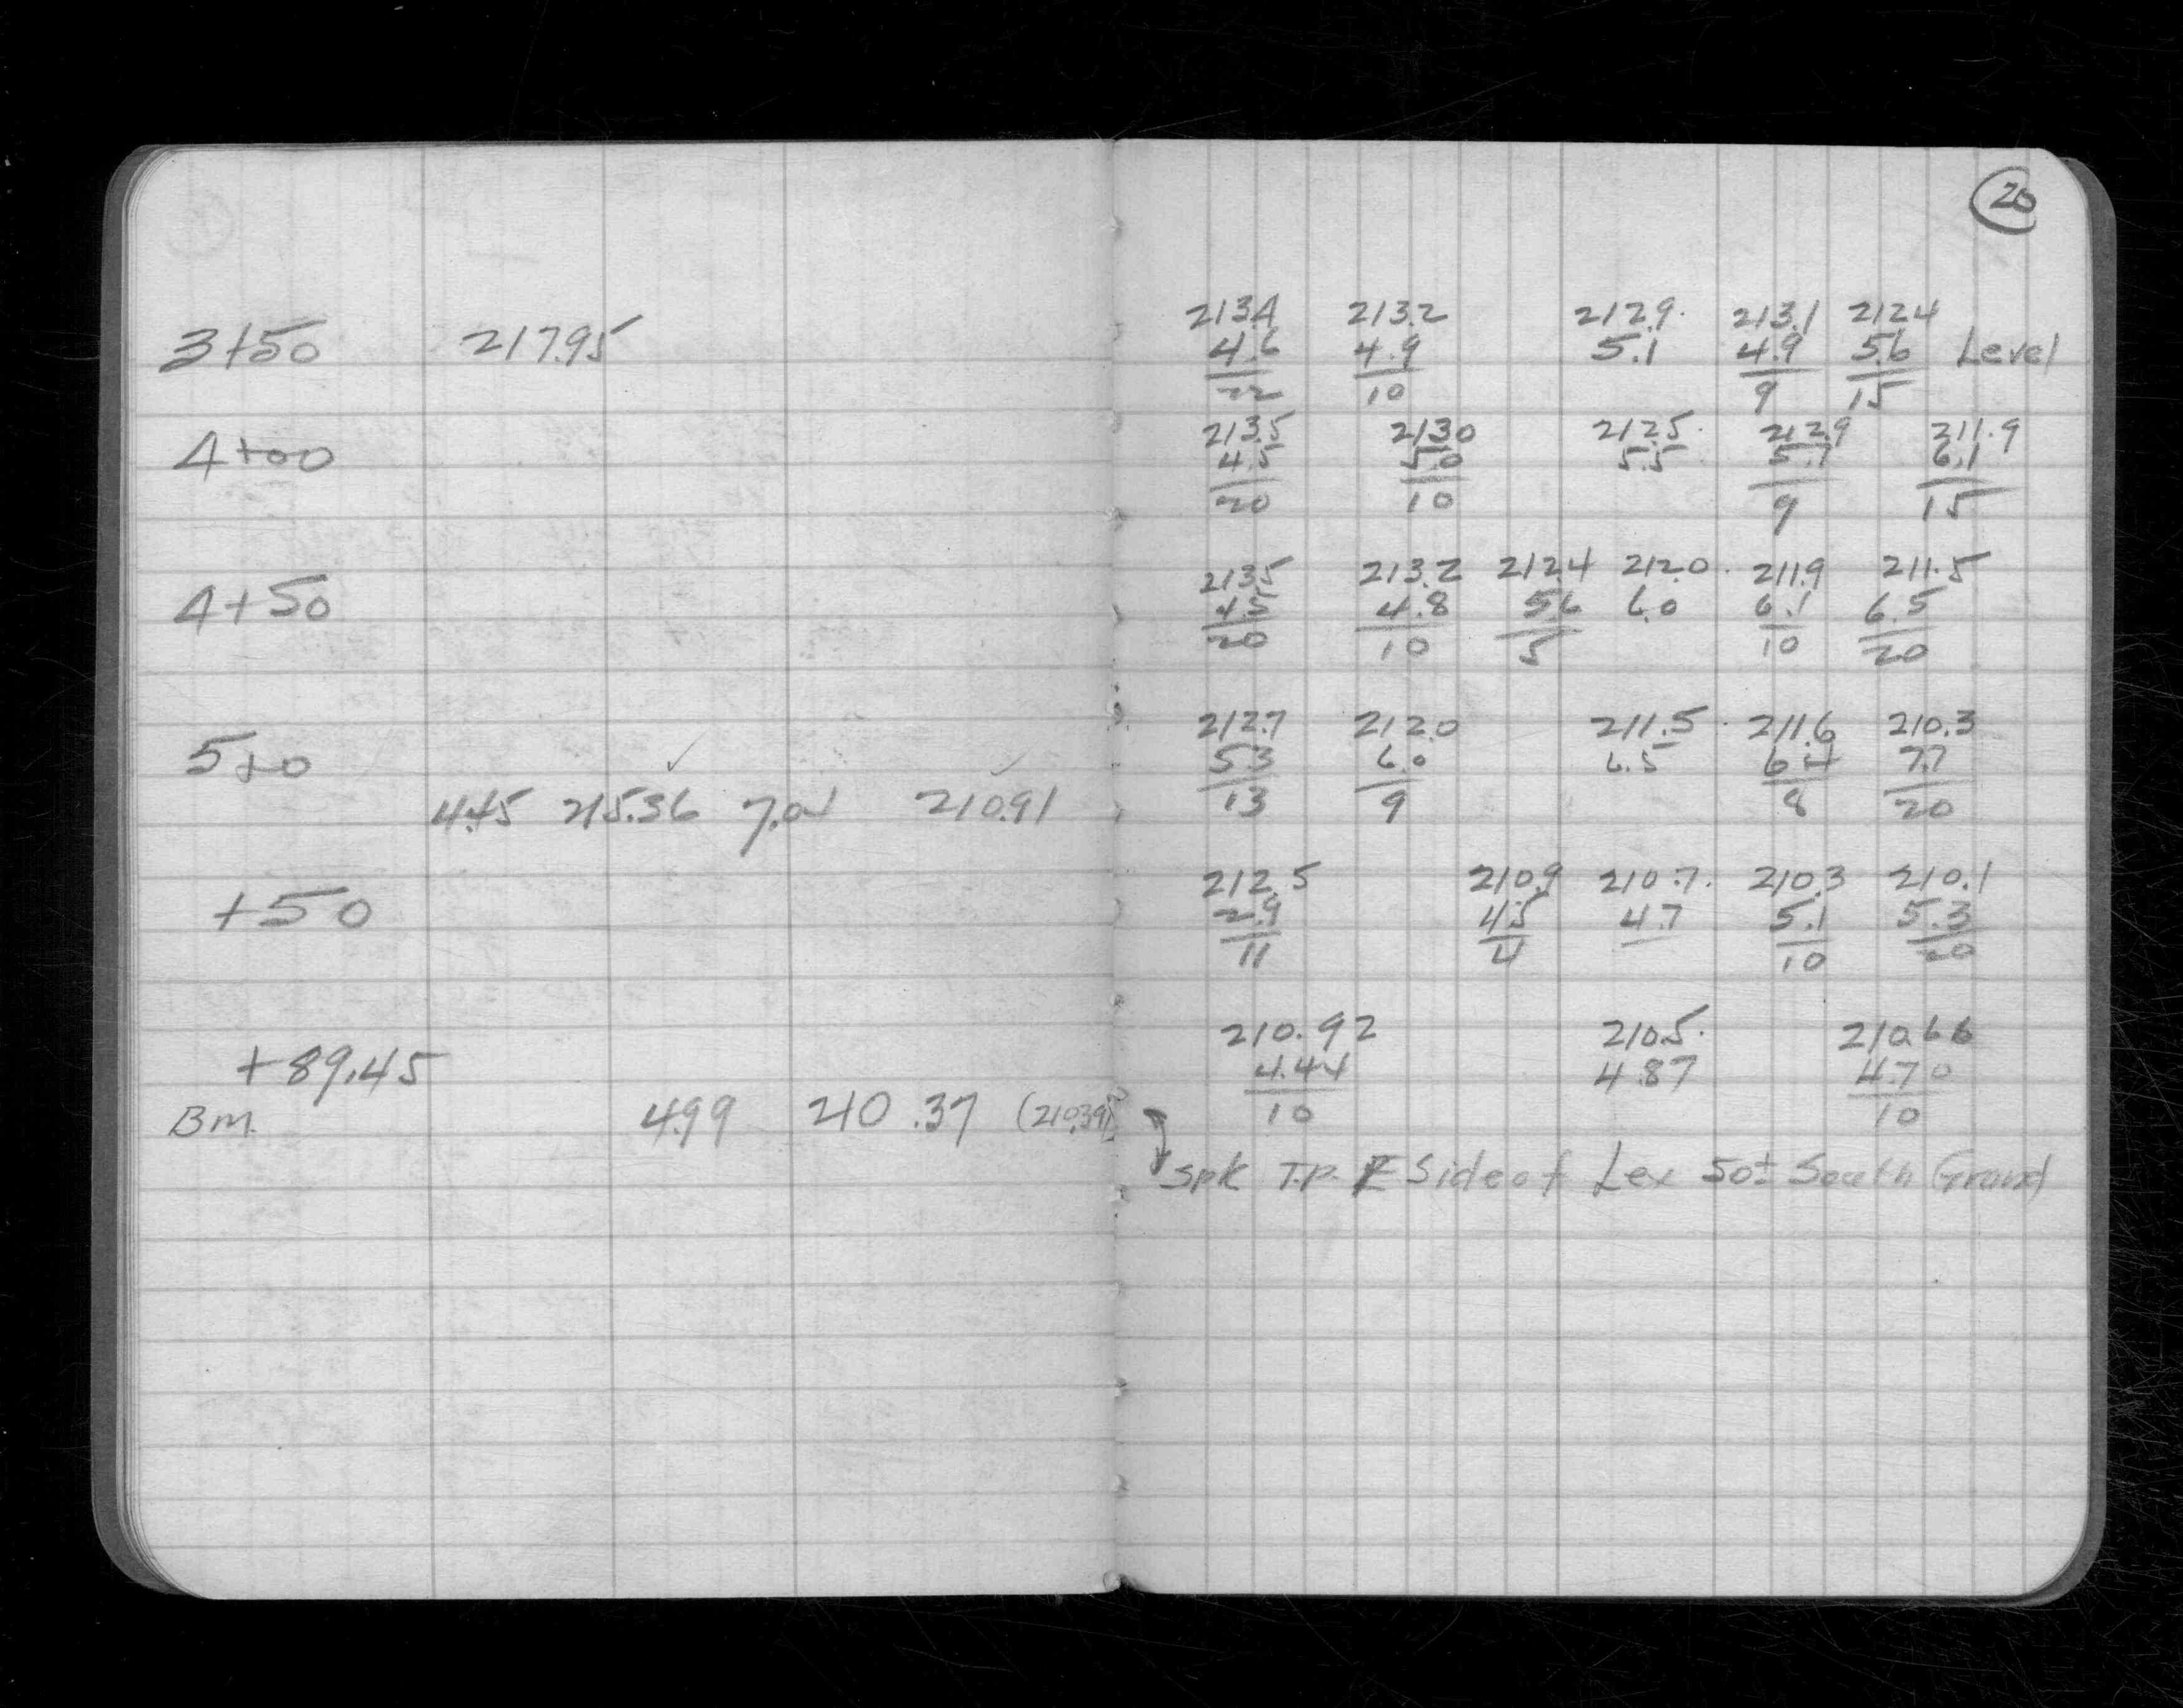 20
3+50 217.95
213.4 213.2 212.9 213.1 212.4
4.6 4.9 5.1 4.9 5.6 Level
22 10 9 15
4+00
213.5 213.0 212.5 212.9 211.9
4.5 5.0 5.5 5.7 6.1
20 10 9 15
4+50
213.5 213.2 212.4 212.0 211.9 211.5
4.5 4.8 5.6 6.0 6.1 6.5
20 10 5 10 20
5+0
212.7 212.0 211.5 211.6 210.3
5.3 6.0 6.5 6.4 7.7
13 9 8 20
4.45 215.36 7.04 210.91
+50
212.5 210.9 210.7 210.3 210.1
2.9 4.5 4.7 5.1 5.3
11 4 10 20
+89.45
210.92 210.5 210.66
4.44 4.87 4.70
10 10
B.M. 4.99 210.37 (210.39)
Spk T.P. E Side of Lex 50± South Grand